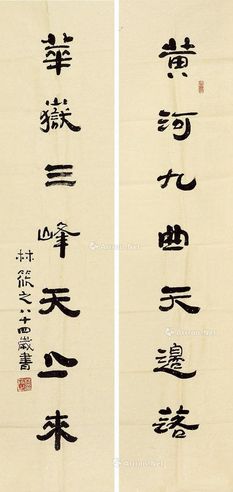 黄河九曲天邊落
華嶽三峰天上來
林筱之八十四歲書